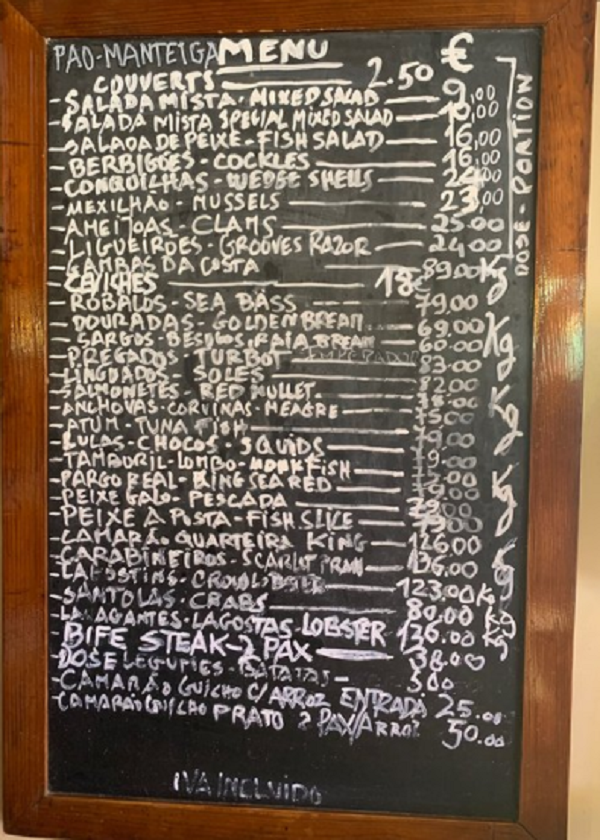 PAO-MANTEIGA MENU €
COUVERTS 2.50
-SALADA MISTA. MIXED SALAD 9,00
-SALADA MISTA SPECIAL MIXED SALAD
-SALADA DE PEIXE-FISH SALAD 16,00
BERBIGÕES-COCKLES 16,00
-CONQUILHAS-WEDGE SHELLS
-MEXILHAO-MUSSELS 23,00
-AMEIJOAS-CLAMS 25.00
-LIGUEIRÕES-GROOVES RAZOR 24.00
-GAMBAS DA COSTA 89.00 Kg
CEVICHES 18€
-ROBALOS-SEA BASS 79,00
-DOURADAS-GOLDEN BREAM 69.00 Kg
-SARGOS-BESUGOS, RAIA, BREAM 60.00
-PREGADOS-TURBOT 83.00
-LINGUADOS-SOLES 82.00
-SALMONETES-RED MULLET Kg
-ANCHOVAS-CORVINAS-MEAGRE
-ATUM-TUNA FISH
-LULAS-CHOCOS-SQUIDS
-TAMBORIL-LOMBO-MONKFISH
-PARGO REAL-KING SEA RED Kg
-PEIXE GALO-PESCADA
-PEIXE A POSTA-FISH SLICE
-CAMARÃO QUARTEIRA KING 126.00
-CARABINEIROS-SCARLET PRAWN 136.00 Kg
-LAGOSTINS. 123.00 Kg
-SANTOLAS-CRABS 80.00
-LAVAGANTES-LAGOSTAS-LOBSTER 136.00 Kg
BIFE STEAK-2 PAX 38.00
-DOSE LEGUMES-BATATAS-
-CAMARÃO GUICHO C/ARROZ ENTRADA 25.00
-CAMARAO GUICHO PRATO 2 PAX/ARROZ 50.00
DOSE-PORTION
IVA INCLUIDO